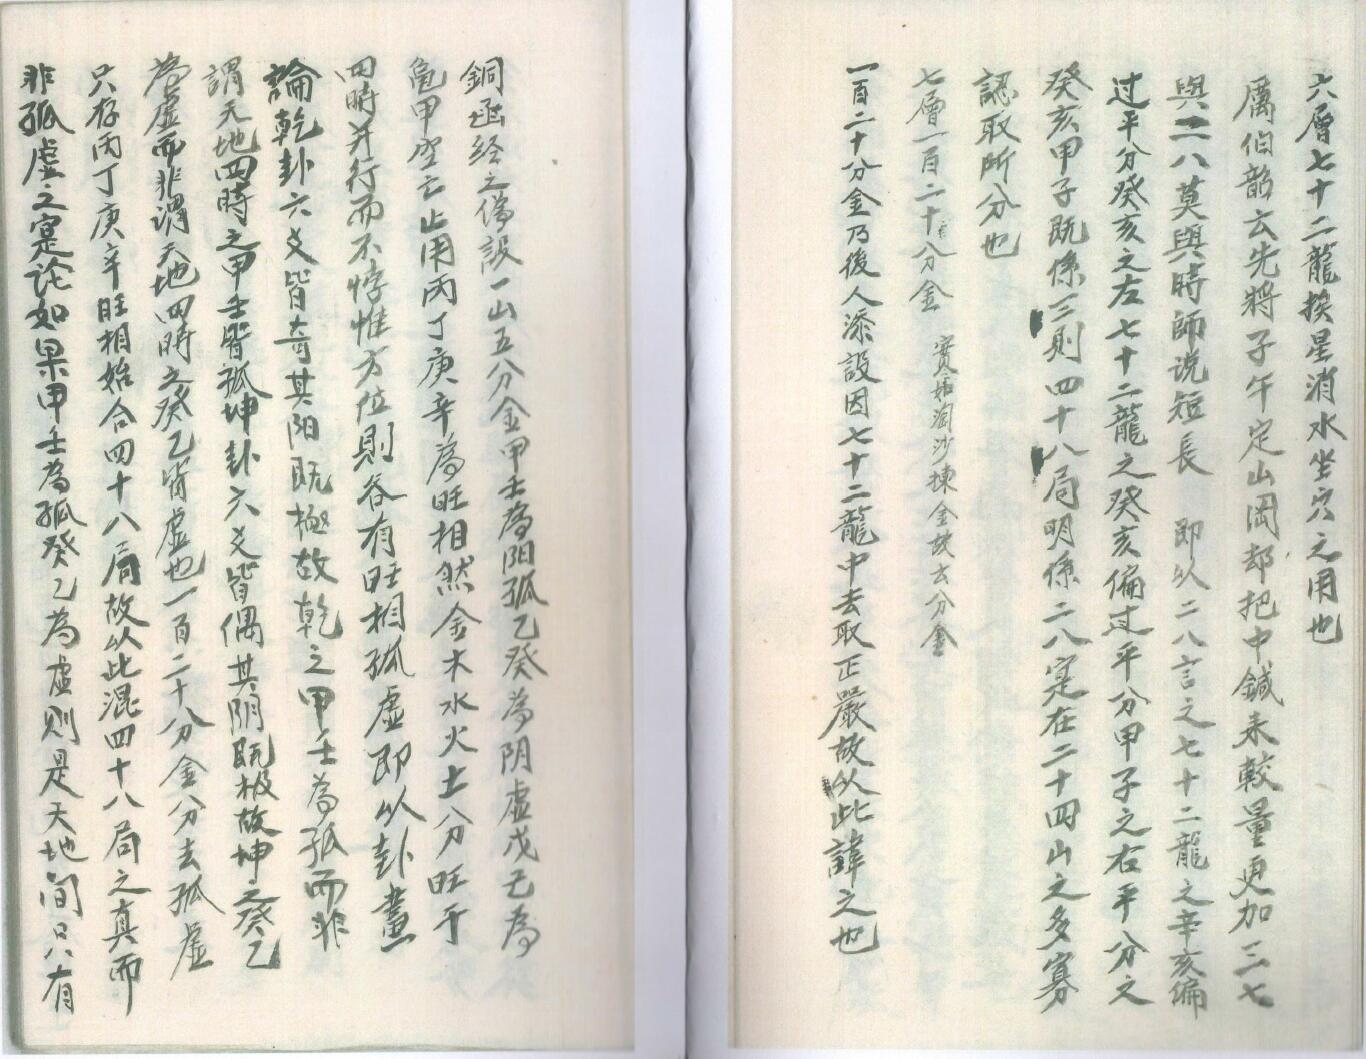 六層七十二龍換星消水坐穴之用也
厲伯韶云先將子午定山岡却把中鍼來較量更加三七
與二八莫與時師说短長 即以二八言之七十二龍之辛亥偏
过平分癸亥之左七十二龍之癸亥偏过平分甲子之右平分之
癸亥甲子既係三則四十八局明係二八寔在二十四山之多寡
認取所分也
七層一百二十分金 寔如淘沙揀金故云分金
一百二十分金乃後人添設因七十二龍中去取正嚴故以此諱之也
銅函经之偽設一山五分金甲壬為阳孤乙癸為阴虛戊己為
龟甲空亡止用丙丁庚辛為旺相然金木水火土分旺于
四時并行而不悖惟方位則各有旺相孤虛即以卦畫
論乾卦六爻皆奇其阳既極故乾之甲壬為孤而非
謂天地四時之甲壬皆孤坤卦六爻皆偶其阴既极故坤之癸乙
為虛而非謂天地四時之癸乙皆虛也一百二十分金分去孤虛
只存丙丁庚辛旺相始合四十八局故以此混四十八局之真而
非孤虛之寔论如果甲壬為孤癸乙為虛則是天地间只有